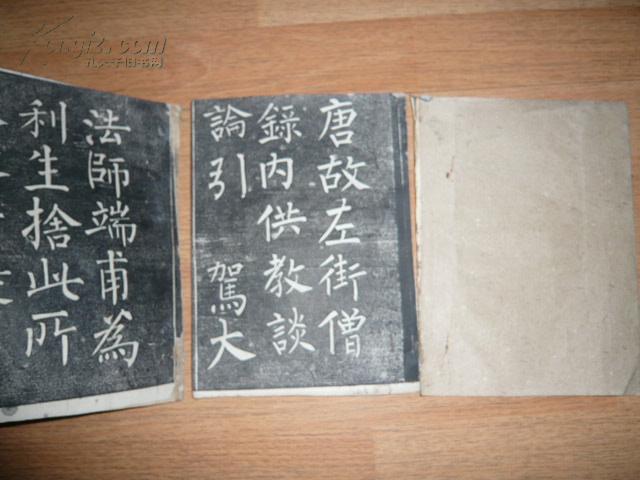 唐故左街僧
錄內供教談
論引 駕大
法師端甫為
利生捨此所
kongfz.com
孔夫子旧书网